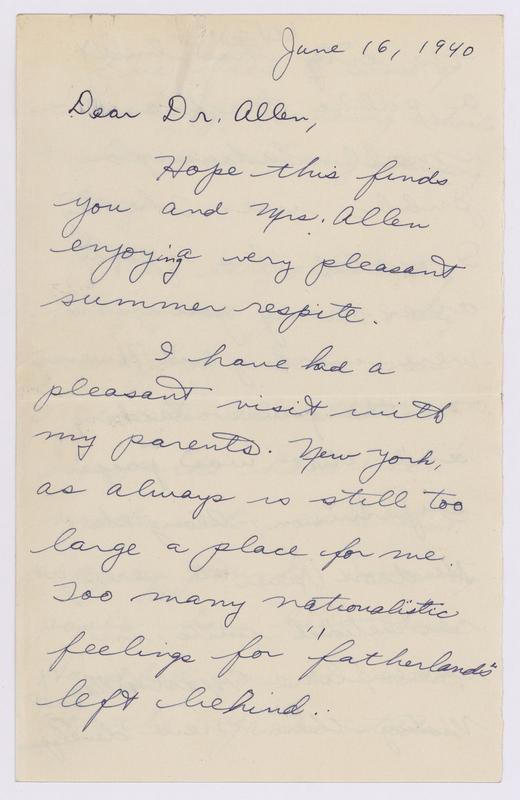 June 16, 1940
Dear Dr. Allen,
Hope this finds
you and Mrs. Allen
enjoying a very pleasant
summer respite.
I have had a
pleasant visit with
my parents. New York,
as always is still too
large a place for me.
Too many nationalistic
feelings for "fatherlands"
left behind.